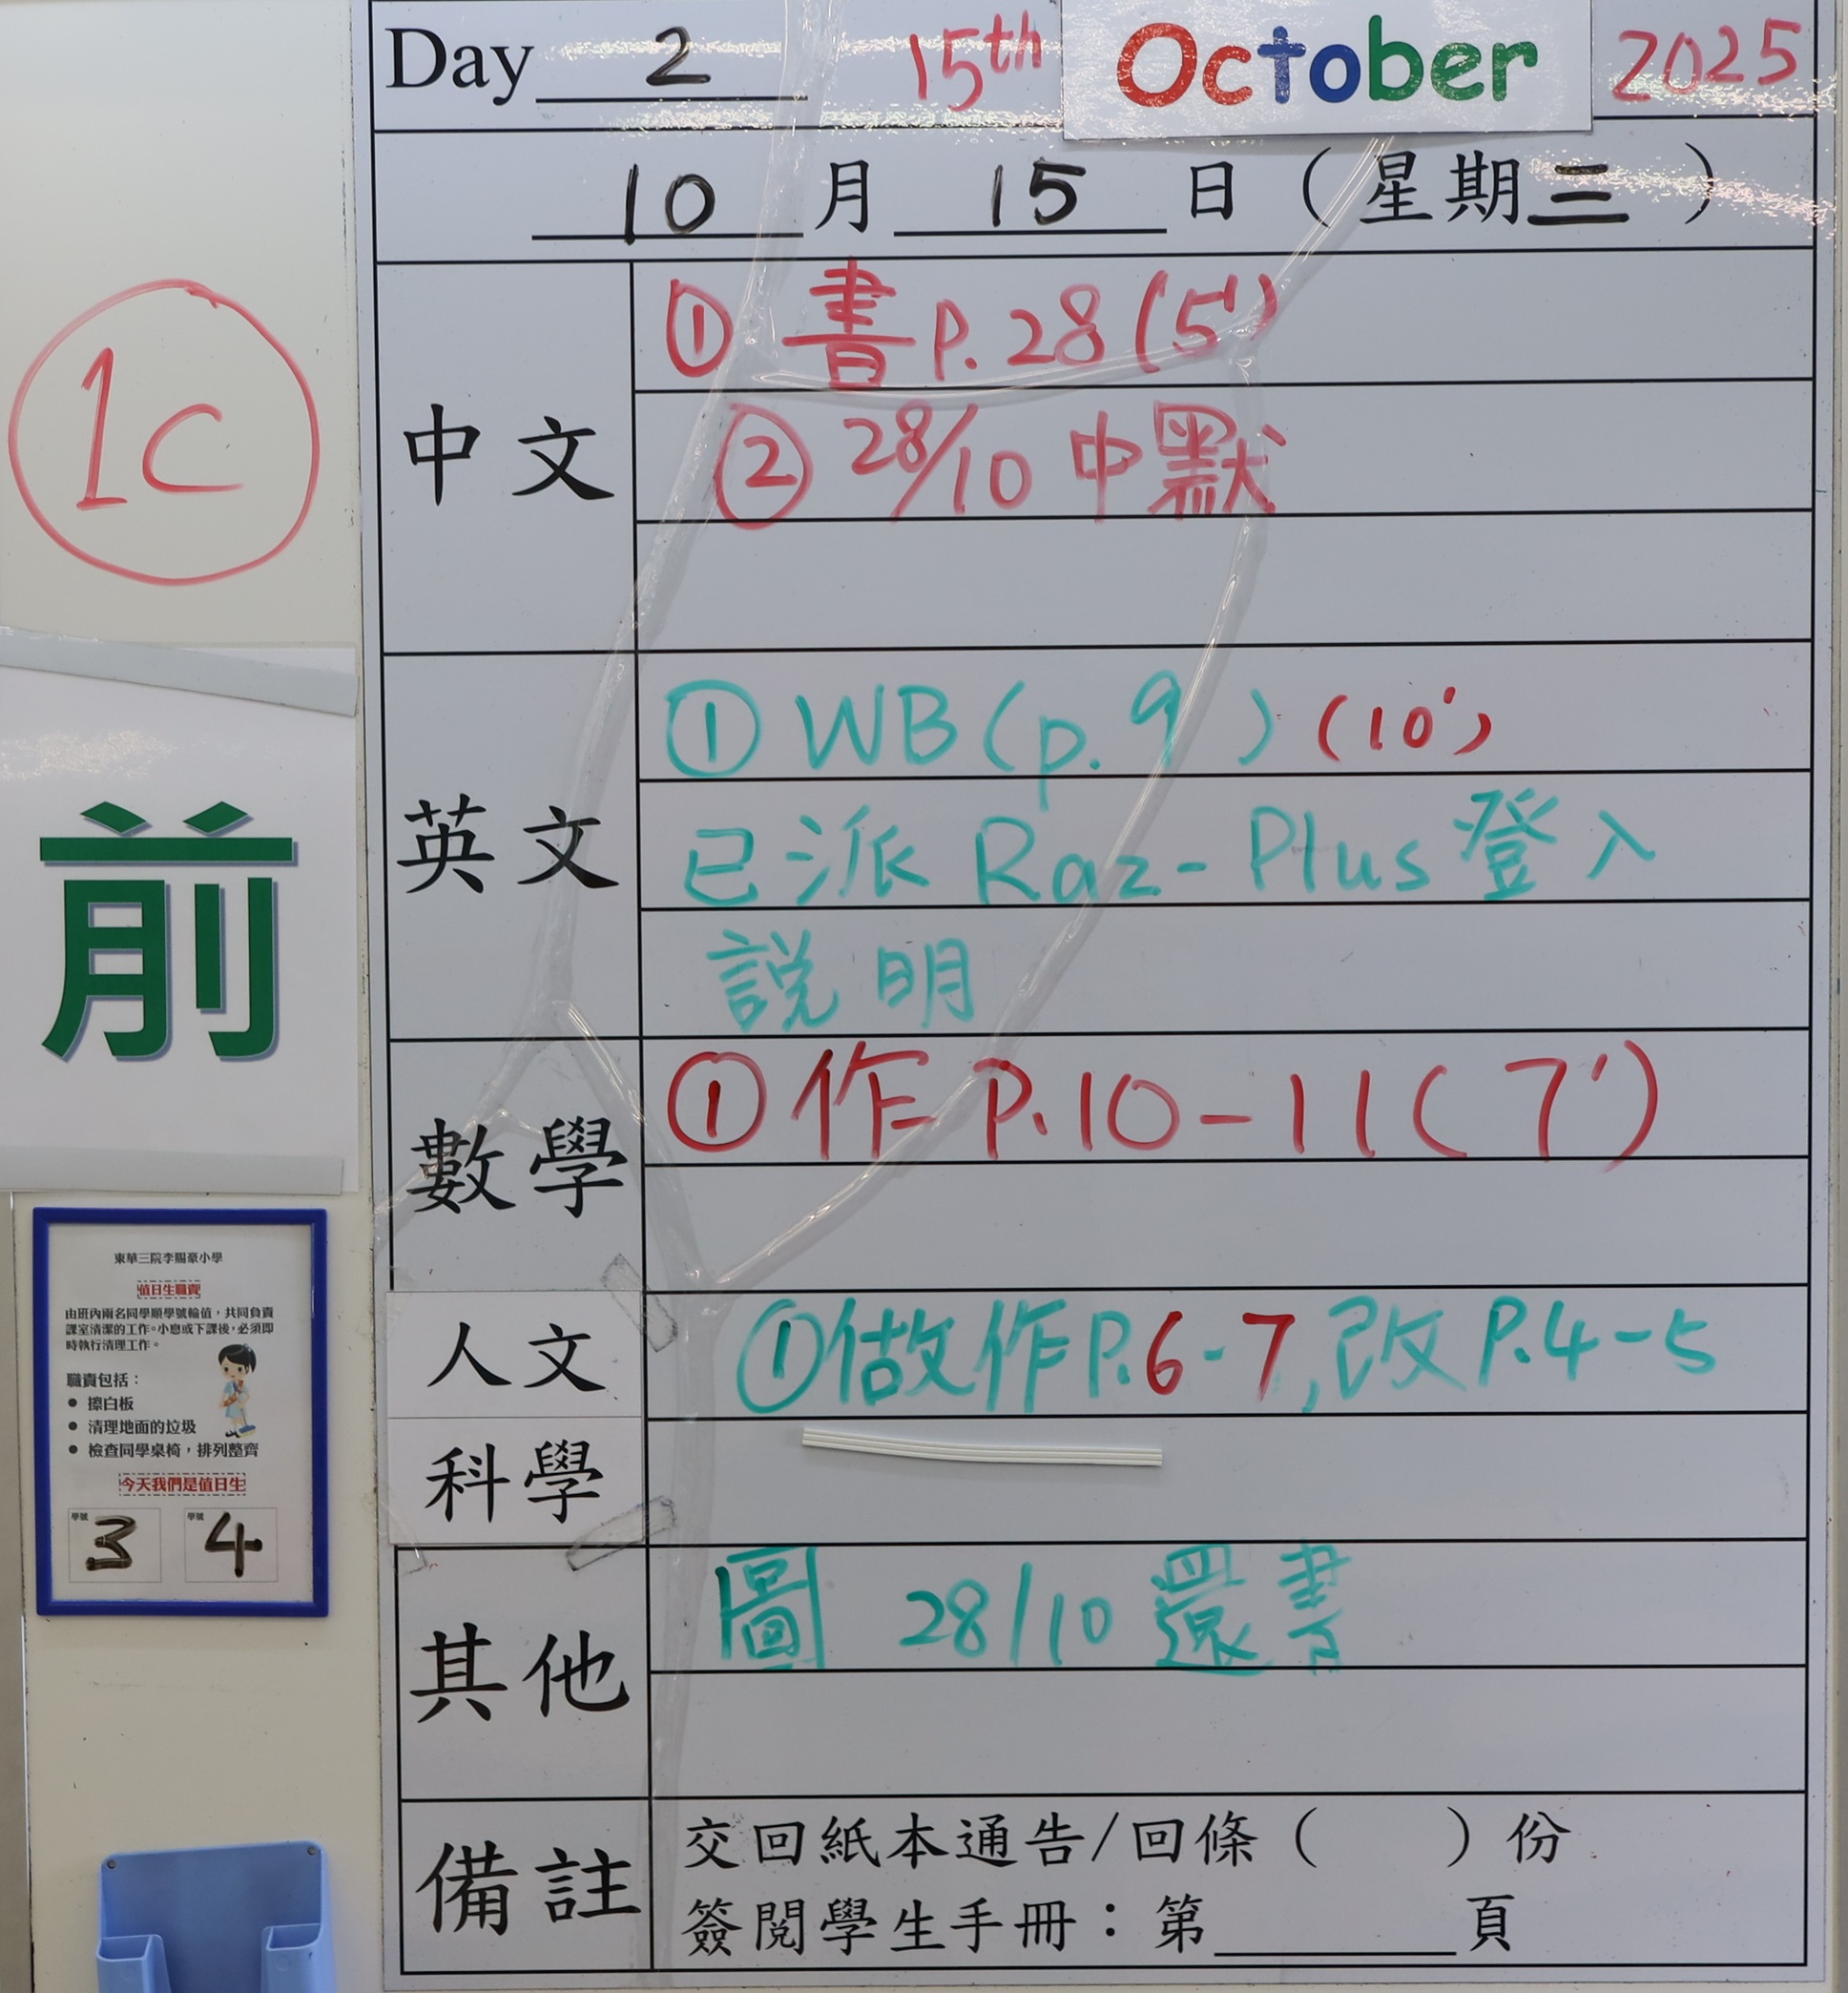 Day 2 15th October 2025
10 月 15 日（星期三）
1C
中文
① 書 P.28 (5')
② 28/10 中默
英文
① WB (p.9) (10')
已派 Raz-Plus 登入
説明
前
數學
① 作 P.10-11 (7')
人文
① 做作 P.6-7, 改 P.4-5
科學
其他
圖 28/10 還書
備註
交回紙本通告/回條（　　）份
簽閱學生手冊：第______頁
東華三院李賜豪小學
值日生職責
由班內兩名同學順學號輪值，共同負責
課室清潔的工作。小息或下課後，必須即
時執行清理工作。
職責包括：
● 擦白板
● 清理地面的垃圾
● 檢查同學桌椅，排列整齊
今天我們是值日生
學號 3 學號 4